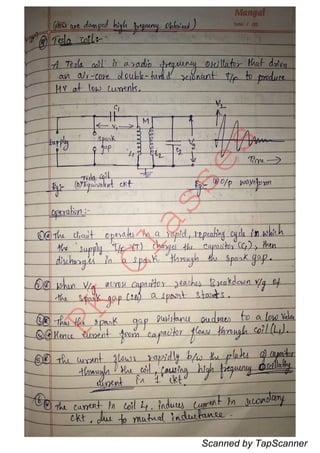 (also are damped high frequency obtained)
Mangal
Tesla coil:-
A Tesla coil is a radio frequency oscillator that drives
an air-core double-tuned resonant T/F to produce
HV at low currents.
C1
M
V2
V1
Supply
Spark
gap
L1
L2
C2
V2
Time →
Tesla coil
Fig:- (a) Equivalent ckt
Fig:- (b) O/P waveform
operation:-
① The circuit operates in a rapid, repeating cycle in which
the supply T/F (T) charges the capacitor (C1), then
discharges in a spark through the spark gap.
② When V/g across capacitor reaches Breakdown V/g of
the spark gap a spark starts.
③ Thus the spark gap resistance reduces to a low value
④ Hence current from capacitor flows through coil (L1).
⑤ The current flows rapidly b/w the plates of capacitor
through the coil, causing high frequency oscillating
current in 1° ckt.
⑥ The current in coil L1, induces current in secondary
ckt, due to mutual inductance.
Classes
Scanned by TapScanner